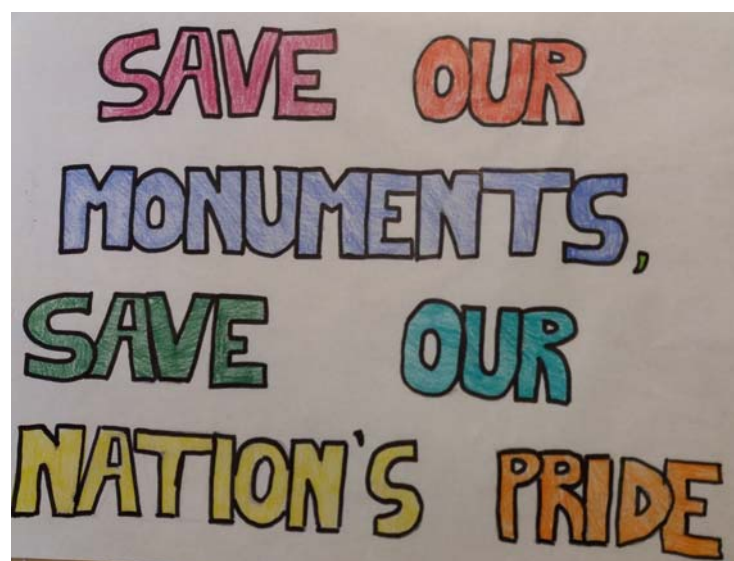 SAVE OUR
MONUMENTS,
SAVE OUR
NATION'S PRIDE